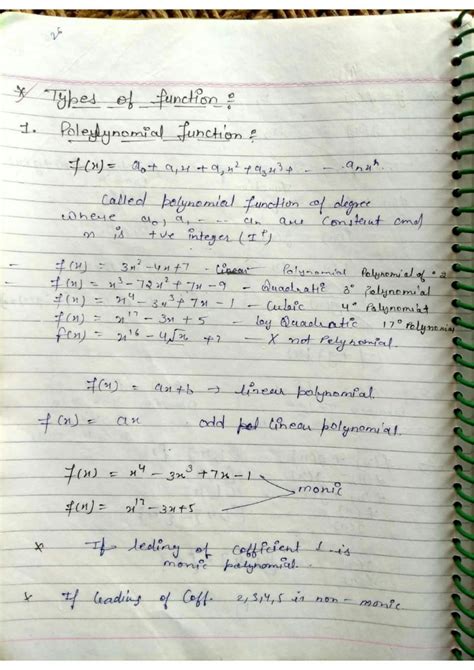 25
* Types of function :
1. Poleylynomial function :
f(x) = a₀ + a₁x + a₂x² + a₃x³ + - - - aₙxⁿ
Called polynomial function of degree
where a₀, a₁ - - - aₙ are constent and
n is +ve integer (I⁺)
- f(x) = 3x² - 4x + 7 - Linear Polynomial Polynomial of ° 2
- f(x) = x³ - 72x² + 7x - 9 - Quadratic 3° Polynomial
f(x) = x⁴ - 3x³ + 7x - 1 - Cubic 4° Polynomial
f(x) = x¹⁷ - 3x + 5 - by Quadratic 17° Polynomial
f(x) = x¹⁶ - 4√x + 2 - X not Polynomial.
f(x) = ax + b → linear polynomial.
f(x) = ax odd pol linear polynomial.
f(x) = x⁴ - 3x³ + 7x - 1
monic
f(x) = x¹⁷ - 3x + 5
* If leding of cofficient 1 is
monic polynomial.
* If leading of Coff. 2,3,4,5 is non - monic